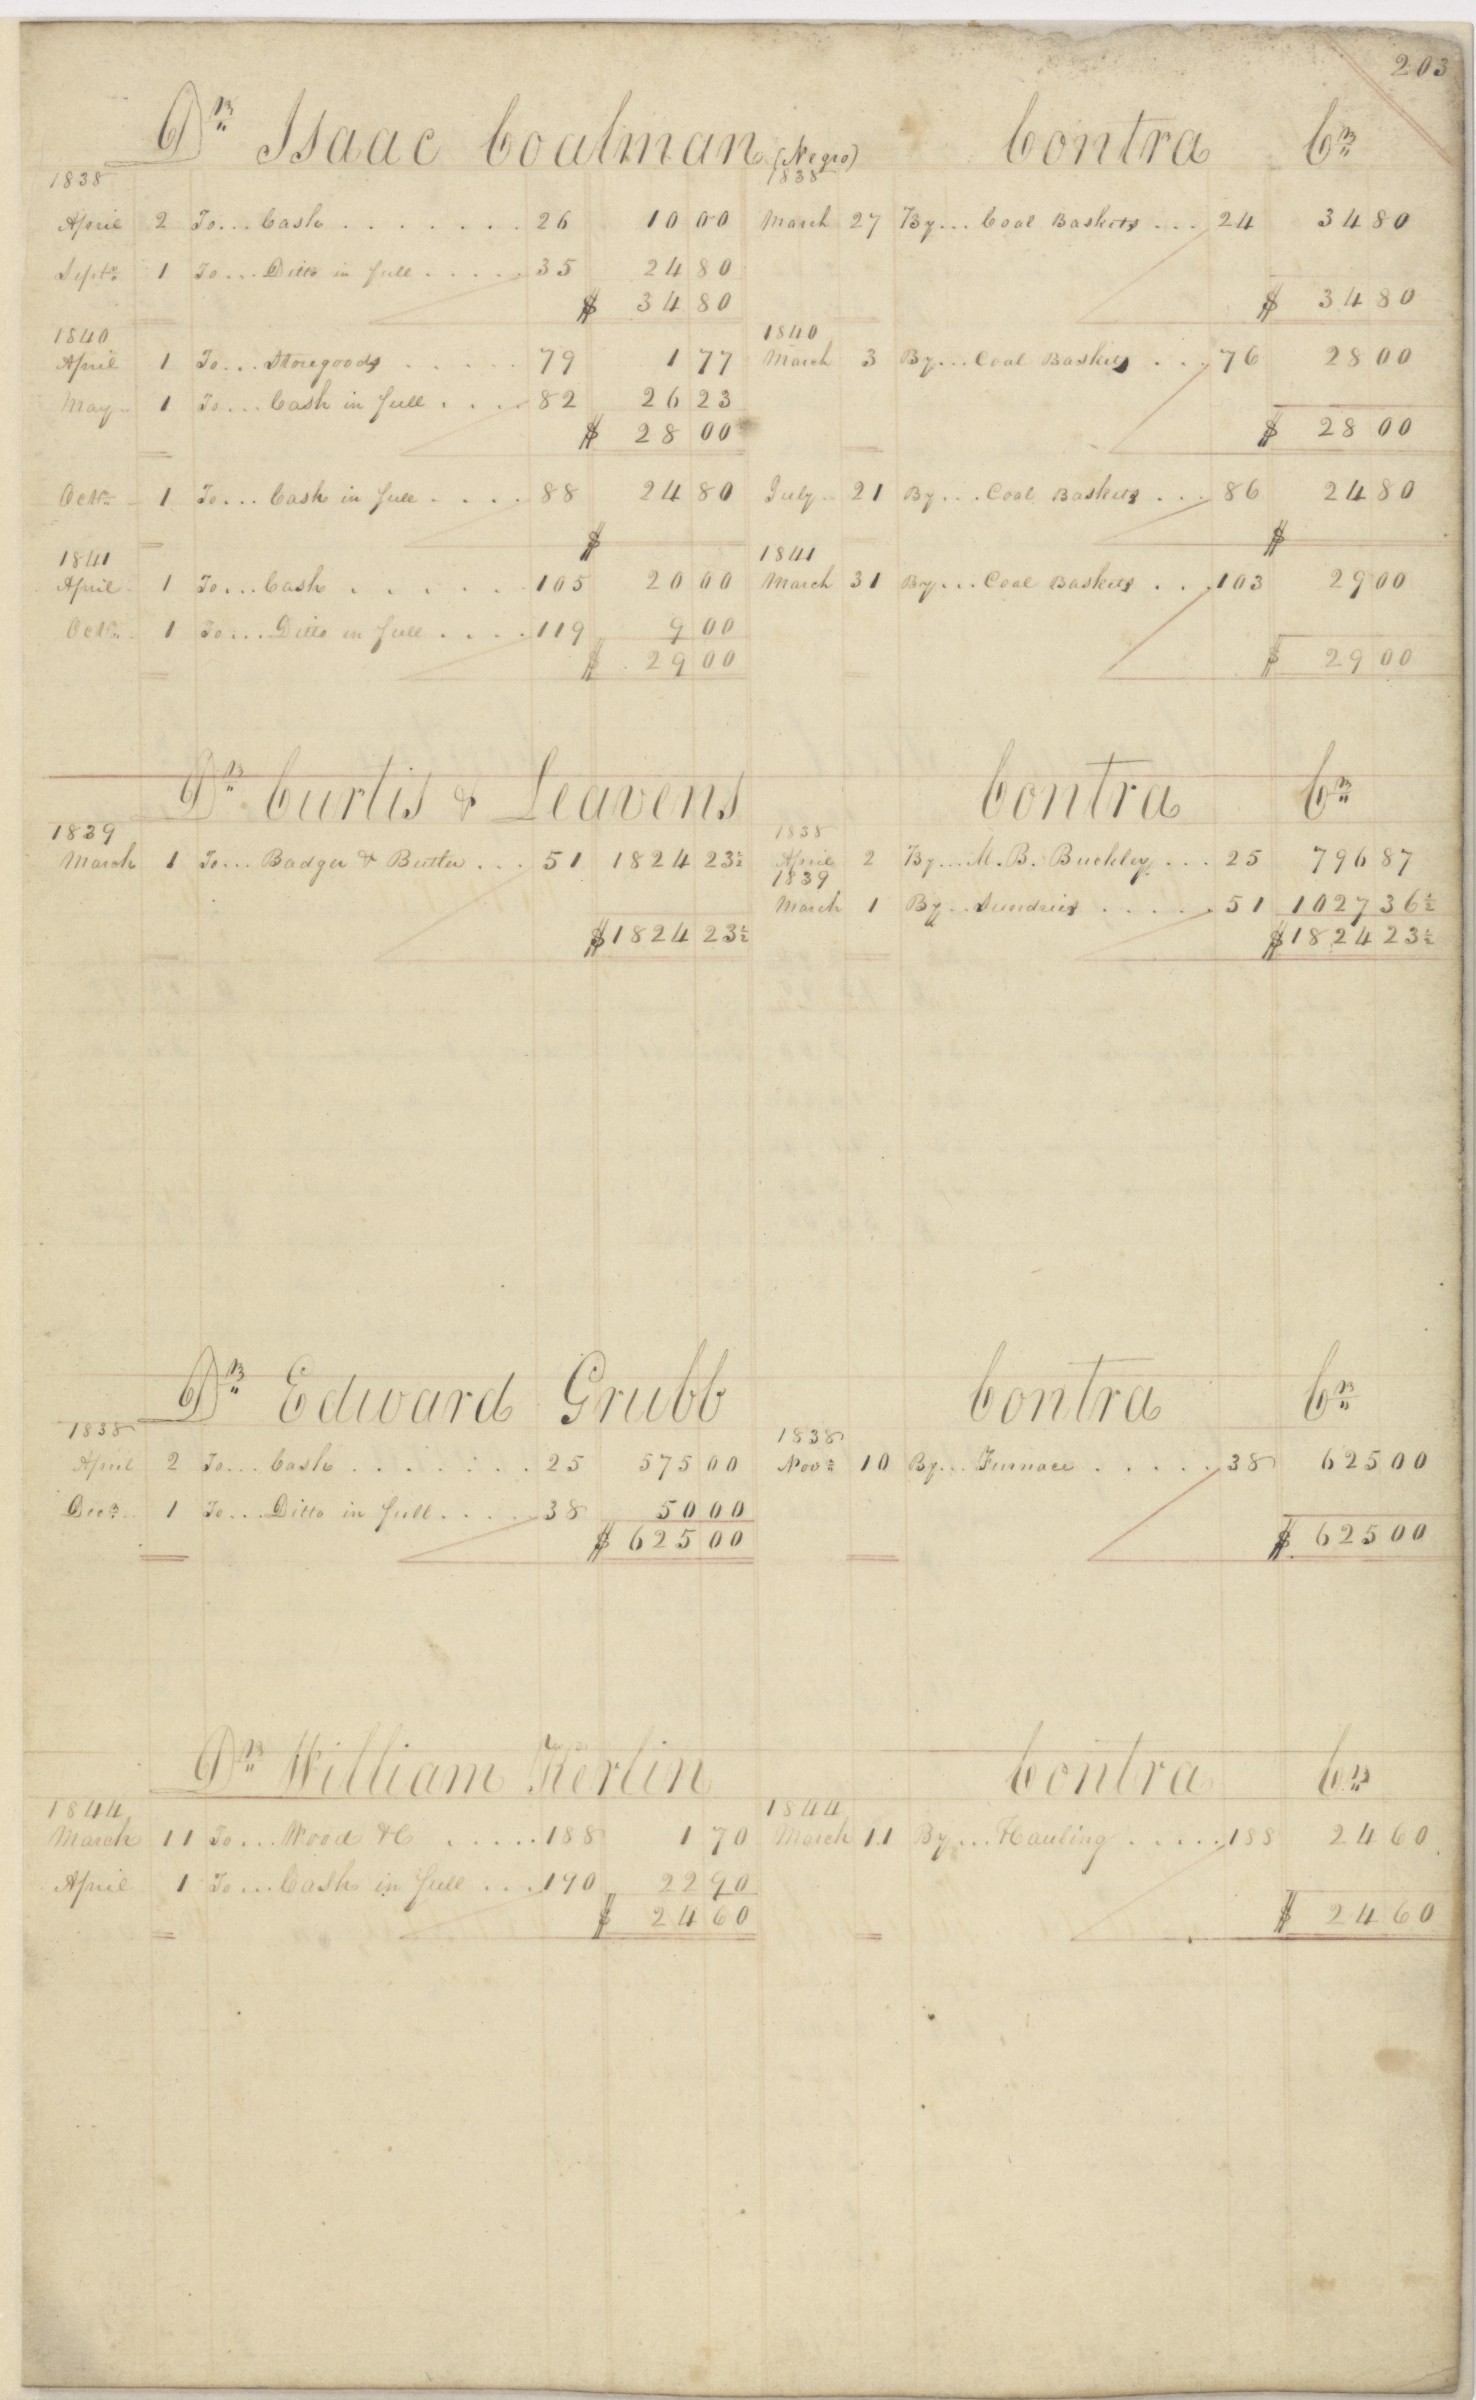 203
Dr Isaac Coalman (Negro) Contra Cr
1838 1838
April 2 To... Cash . . . . . . . 26 10 00 March 27 By... Coal Baskets . . . 24 34 80
Septr 1 To... Ditto in full . . . . . 35 24 80
$ 34 80 $ 34 80
1840 1840
April 1 To... Storegoods . . . . . 79 1 77 March 3 By... Coal Baskets . . . 76 28 00
May 1 To... Cash in full . . . . 82 26 23
$ 28 00 $ 28 00
Octr 1 To... Cash in full . . . . 88 24 80 July 21 By... Coal Baskets . . . 86 24 80
$ $
1841 1841
April 1 To... Cash . . . . . . 105 20 00 March 31 By... Coal Baskets . . . 103 29 00
Octr 1 To... Ditto in full . . . . 119 9 00
$ 29 00 $ 29 00
Dr Curtis & Leavens Contra Cr
1839 1838
March 1 To... Badger & Butter . . . 51 1824 23½ April 2 By... M. B. Buckley . . . 25 796 87
1839
March 1 By... Sundries . . . . . 51 1027 36½
$ 1824 23½ $ 1824 23½
Dr Edward Grubb Contra Cr
1838 1838
April 2 To... Cash . . . . . . . 25 575 00 Novr 10 By... Furnace . . . . . 38 625 00
Decr 1 To... Ditto in full . . . . . 38 50 00
$ 625 00 $ 625 00
Dr William Kerlin Contra Cr
1844 1844
March 11 To... Wood &C . . . . . 188 1 70 March 11 By... Hauling . . . . . 188 24 60
April 1 To... Cash in full . . . 190 22 90
$ 24 60 $ 24 60